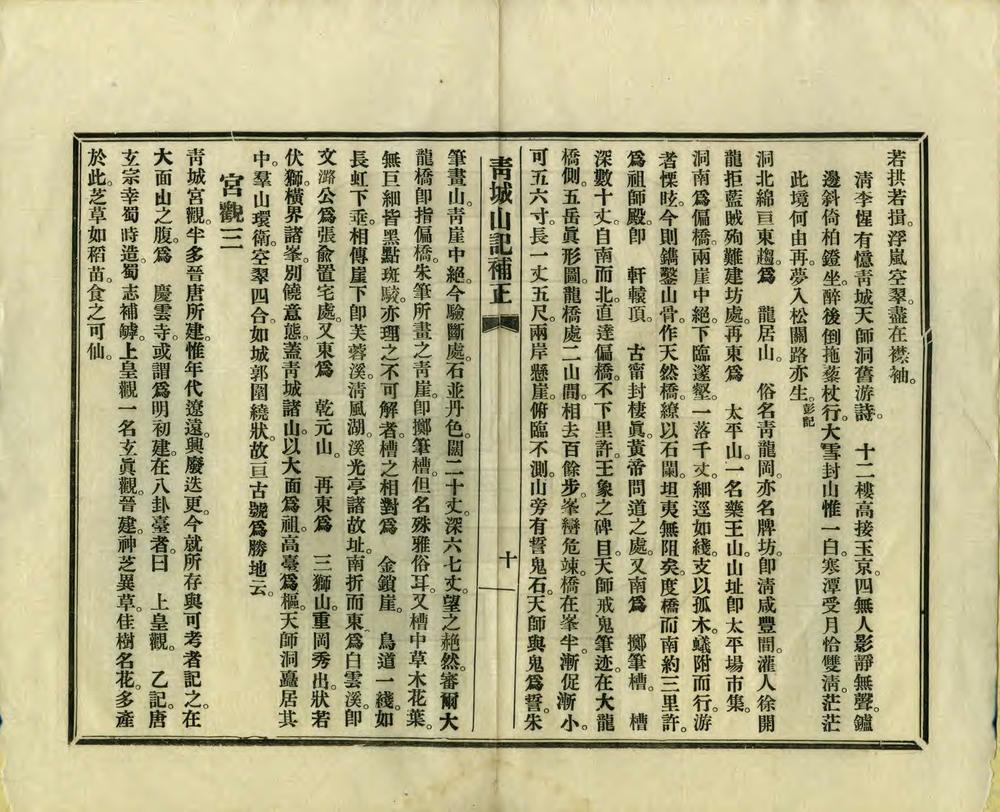 若拱若揖。浮嵐空翠。盡在襟袖。
清李惺有憶靑城天師洞舊游詩。　十二樓高接玉京。四無人影靜無聲。鑪
邊斜倚柏鐙坐。醉後倒拖藜杖行。大雪封山惟一白。寒潭受月恰雙淸。茫茫
此境何由再。夢入松關路亦生。彭記
洞北綿亘東趨。爲　龍居山。　俗名靑龍岡。亦名牌坊。卽淸咸豐間。灌人徐開
龍拒藍賊殉難建坊處。再東爲　太平山。一名藥王山。山址卽太平場市集。
洞南爲偏橋。兩崖中絕。下臨邃壑。一落千丈。細逕如綫。支以孤木。蟻附而行。游
者慄眩。今則鐫鑿山骨。作天然橋。繚以石闌。坦夷無阻矣。度橋而南約三里許。
爲祖師殿。卽　軒轅頂。　古甯封棲眞。黃帝問道之處。又南爲　擲筆槽。　槽
深數十丈。自南而北。直達偏橋。不下里許。王象之碑目。天師戒鬼筆迹。在大龍
橋側。五岳眞形圖。龍橋處二山間。相去百餘步。峯巒危竦。橋在峯半。漸促漸小。
可五六寸。長一丈五尺。兩岸懸崖。俯臨不測。山旁有誓鬼石。天師與鬼爲誓。朱
靑城山記補正　十
筆畫山。靑崖中絕。今驗斷處。石並丹色。闊二十丈。深六七丈。望之赩然。審爾大
龍橋卽指偏橋。朱筆所畫之靑崖。卽擲筆槽。但名殊雅俗耳。又槽中草木花葉。
無巨細皆黑點斑駮。亦理之不可解者。槽之相對爲　金鎖崖。　鳥道一綫。如
長虹下垂。相傳崖下卽芙蓉溪。淸風湖。溪光亭諸故址。南折而東。爲白雲溪。卽
文潞公爲張兪置宅處。又東爲　乾元山。　再東爲　三獅山。重岡秀出。狀若
伏獅。橫界諸峯。別饒意態。蓋靑城諸山。以大面爲祖。高臺爲樞。天師洞矗居其
中。羣山環衛。空翠四合。如城郭圍繞狀。故亘古號爲勝地云。
宮觀三
靑城宮觀。半多晉唐所建。惟年代遼遠。興廢迭更。今就所存與可考者記之。在
大面山之腹。爲　慶雲寺。或謂爲明初建。在八卦臺者。曰　上皇觀。　乙記。唐
玄宗幸蜀時造。蜀志補罅。上皇觀一名玄眞觀。晉建。神芝異草。佳樹名花。多產
於此。芝草如稻苗。食之可仙。